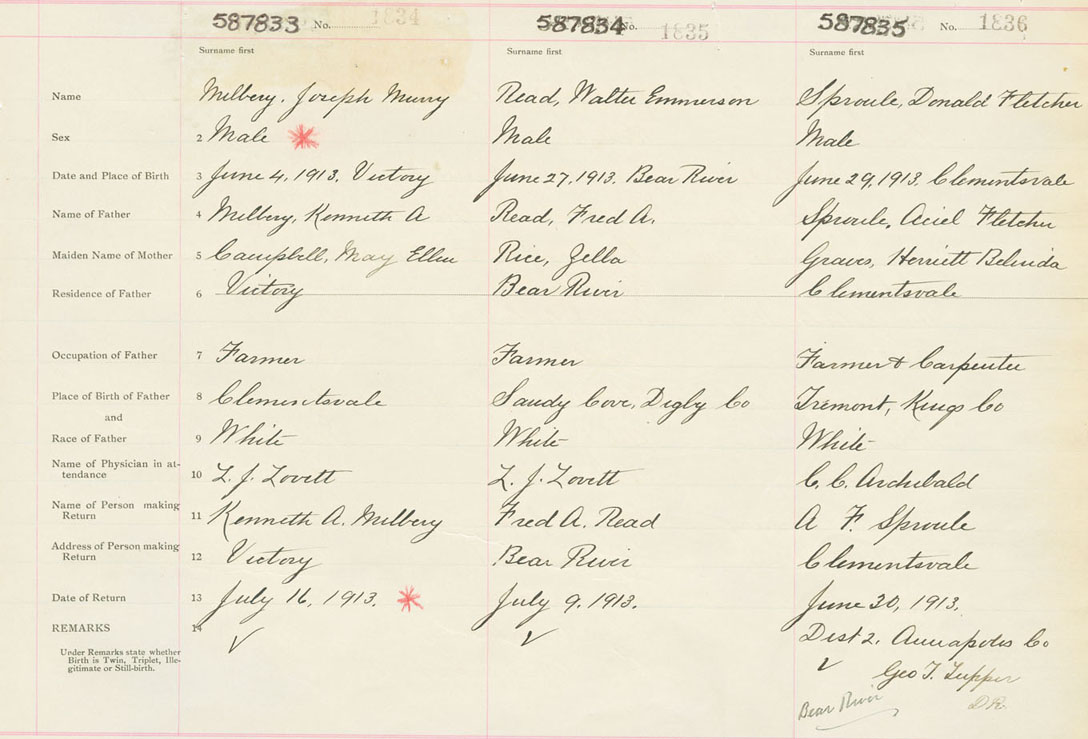 587833 No. 1834 587834 No. 1835 587835 No. 1836
Surname first Surname first Surname first
Name Milbery, Joseph Murry Read, Walter Emmerson Sproule, Donald Fletcher
Sex 2 Male Male Male
Date and Place of Birth 3 June 4, 1913. Victory June 27, 1913. Bear River June 29, 1913. Clementsvale
Name of Father 4 Milbery, Kenneth A Read, Fred A. Sproule, Fletcher
Maiden Name of Mother 5 Campbell, May Ellen Rice, Zella Graves, Herriett Belinda
Residence of Father 6 Victory Bear River Clementsvale
Occupation of Father 7 Farmer Farmer Farmer & Carpenter
Place of Birth of Father 8 Clementsvale Sandy Cove, Digby Co Tremont, Kings Co
and
Race of Father 9 White White White
Name of Physician in at-
tendance 10 L. J. Lovett L. J. Lovett C. C. Archibald
Name of Person making
Return 11 Kenneth A. Milbery Fred A. Read A F. Sproule
Address of Person making
Return 12 Victory Bear River Clementsvale
Date of Return 13 July 16, 1913. July 9. 1913. June 30, 1913.
REMARKS 14 Dist 2. Annapolis Co
Under Remarks state whether
Birth is Twin, Triplet, Ille-
gitimate or Still-birth.
Geo T. Tupper
Bear River D.R.